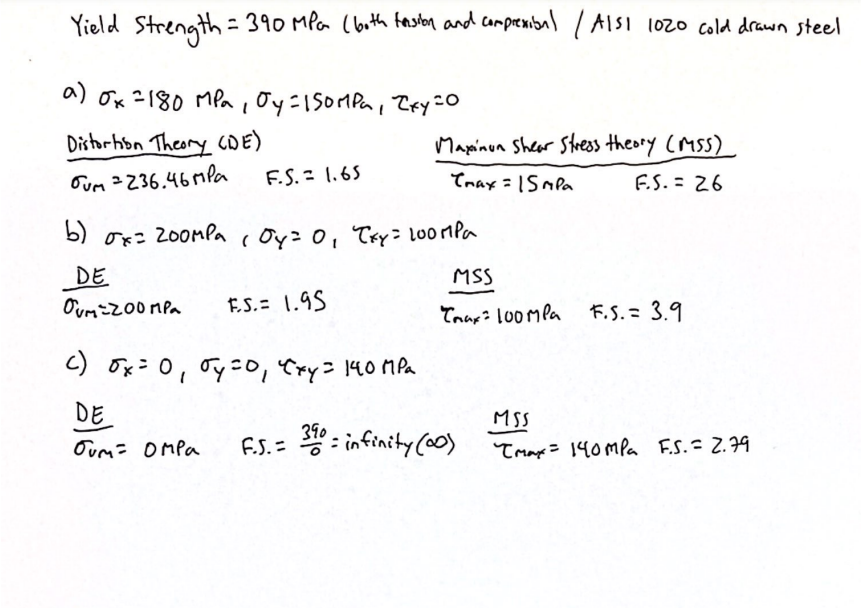 Yield Strength = 390 MPa (both tension and compression) / AISI 1020 cold drawn steel
a) σx = 180 MPa, σy = 150 MPa, τxy = 0
Distortion Theory (DE) Maximum Shear Stress theory (MSS)
σvm = 236.46 MPa F.S. = 1.65 τmax = 15 MPa F.S. = 26
b) σx = 200 MPa, σy = 0, τxy = 100 MPa
DE MSS
σvm = 200 MPa F.S. = 1.95 τmax = 100 MPa F.S. = 3.9
c) σx = 0, σy = 0, τxy = 140 MPa
DE MSS
σvm = 0 MPa F.S. = 390/0 = infinity (∞) τmax = 140 MPa F.S. = 2.79